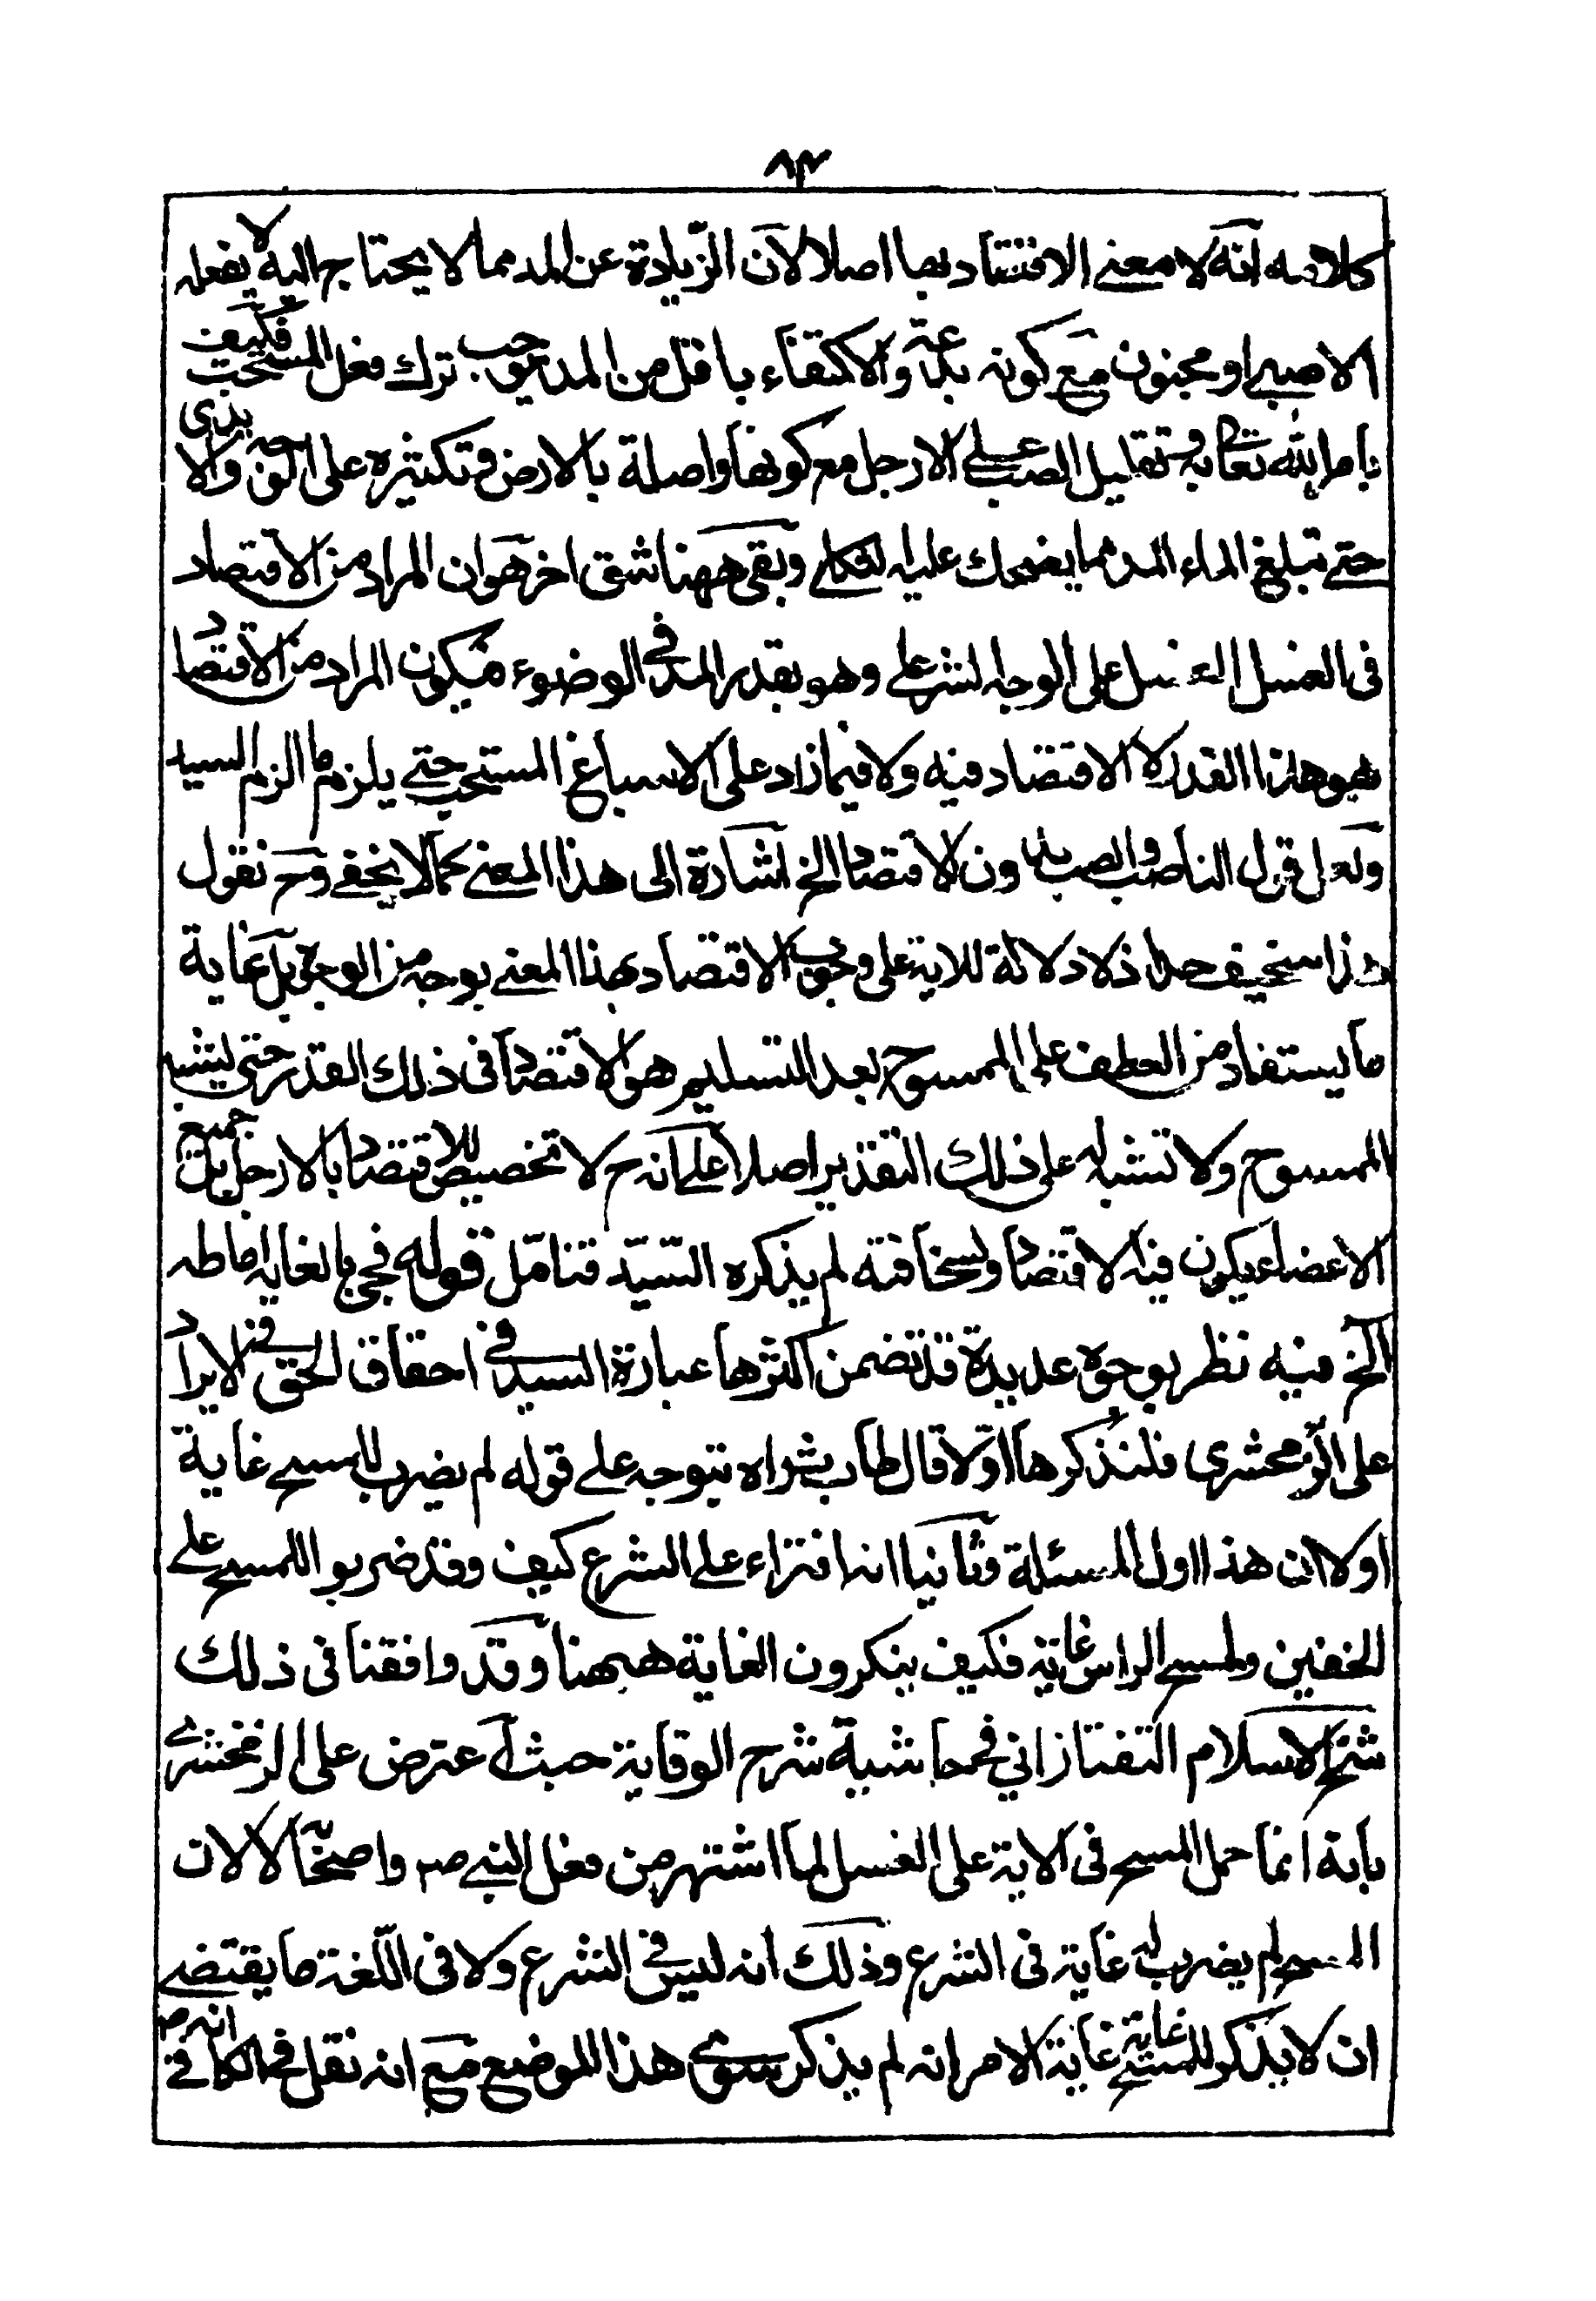 ٨٣
كلامه انه لا معنى الاقتصاد بها اصلا لان الزيادة عن المد مما لا يحتاج اليه لا يفعله
الا صبي او مجنون مع كونه بدعة والاكتفاء باقل من المد يوجب ترك فعل المستحب فكيف
بامر الله تعالى به وتقليل الصب على الارجل مع كونها واصلة بالارض وتكثيره على الوجه والايدى
حتى تبلغ الماء المد مما يضحك عليه الثكلى وبقى ههنا شق اخر هو ان المراد من الاقتصاد
فى الغسل الغسل على الوجه الشرعى وهو بقدر المد فى الوضوء فيكون المراد من الاقتصاد
هو هذا القدر لا الاقتصاد فيه ولا فيما زاد على الاسباغ المستحب حتى يلزم ما الزم السيد
ولعل قول الناصب والصب بدون الاقتصاد الخ اشارة الى هذا المعنى كما لا يخفى وح نقول
هذا سخيف جدا اذ لا دلالة للاية على وجوب الاقتصاد بهذا المعنى بوجه من الوجوه بل غاية
ما يستفاد من العطف على الممسوح بعد التسليم هو الاقتصاد فى ذلك القدر حتى يشبه
الممسوح ولا تشبه على ذلك التقدير اصلا على انه ح لا تخصيص للاقتصاد بالارجل بل جميع
الاعضاء يكون فيه الاقتصاد ولسخافته لم يذكره السيد فتامل قوله فجئ بالغاية اماطه
الخ فيه نظر بوجوه عديدة قد تضمن اكثرها عبارة السيد فى احقاق الحق فى الايراد
على الزمخشرى فلنذكرها اولا قال طاب ثراه يتوجه على قوله لم يضرب للمسح غاية
اولا ان هذا اول المسئلة وثانيا انه افتراء على الشرع كيف وقد ضربوا للمسح على
الخفين ولمسح الراس غاية فكيف ينكرون الغاية ههنا وقد وافقنا فى ذلك
شيخ الاسلام التفتازانى فى حاشية شرح الوقاية حيث اعترض على الزمخشرى
بانه انما حمل المسح فى الاية على الغسل لما اشتهر من فعل النبى ص واصحابه لا لان
المسح لم يضرب له غاية فى الشرع وذلك انه ليس فى الشرع ولا فى اللغة ما يقتضى
ان لا يذكر للمسح غاية غاية الامر انه لم يذكر سوى هذا الموضع مع انه نقل فى الكافى انه ص